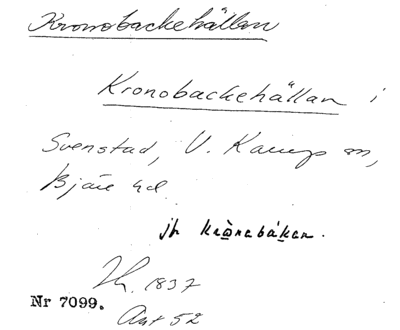 Kronobackehällan
Kronobackehällan i
Svenstad, V. Karup sn,
Bjäre hd.
jfr krònabákan.
Th. 1837
Nr 7099.
Ant 52